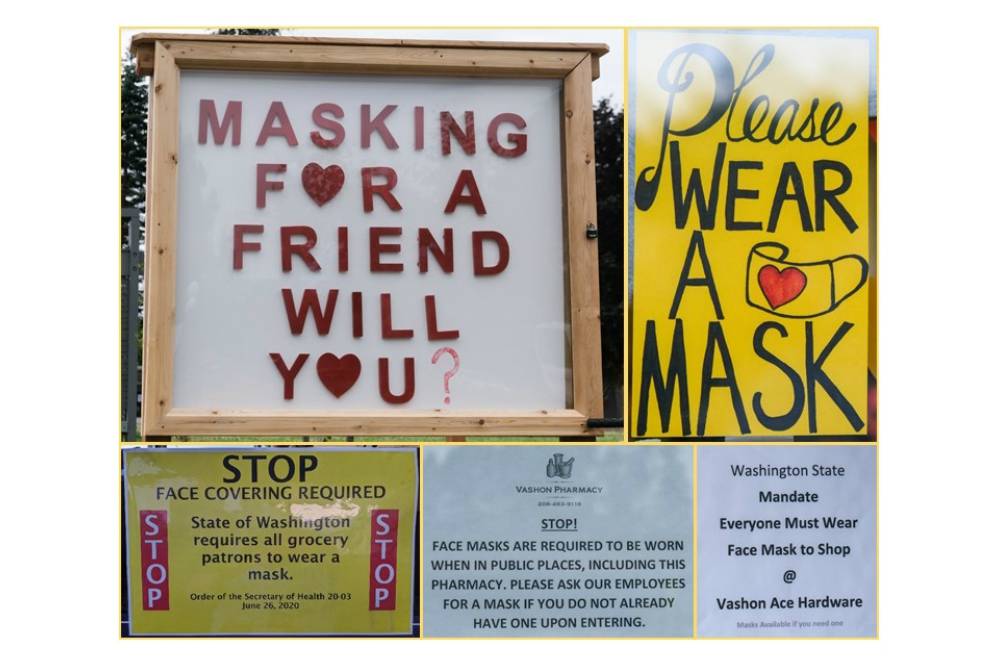 MASKING
F♥R A
FRIEND
WILL
Y♥U?
Please
WEAR
A
MASK
STOP
FACE COVERING REQUIRED
STOP
State of Washington
requires all grocery
patrons to wear a
mask.
Order of the Secretary of Health 20-03
June 26, 2020
STOP
VASHON PHARMACY
STOP!
FACE MASKS ARE REQUIRED TO BE WORN
WHEN IN PUBLIC PLACES, INCLUDING THIS
PHARMACY. PLEASE ASK OUR EMPLOYEES
FOR A MASK IF YOU DO NOT ALREADY
HAVE ONE UPON ENTERING.
Washington State
Mandate
Everyone Must Wear
Face Mask to Shop
@
Vashon Ace Hardware
Masks Available if you need one